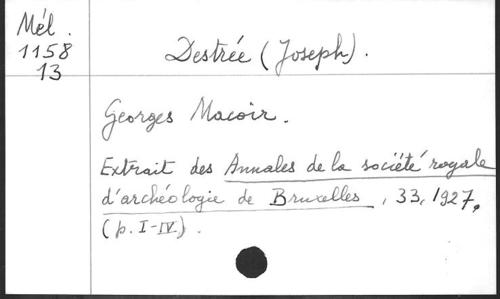 Mél.
1158
13
Destrée (Joseph).
Georges Macoir.
Extrait des Annales de la société royale
d'archéologie de Bruxelles, 33, 1927,
(p. I-IV).